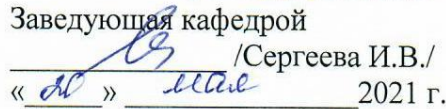 Заведующая кафедрой
/Сергеева И.В./
«20» мая 2021 г.